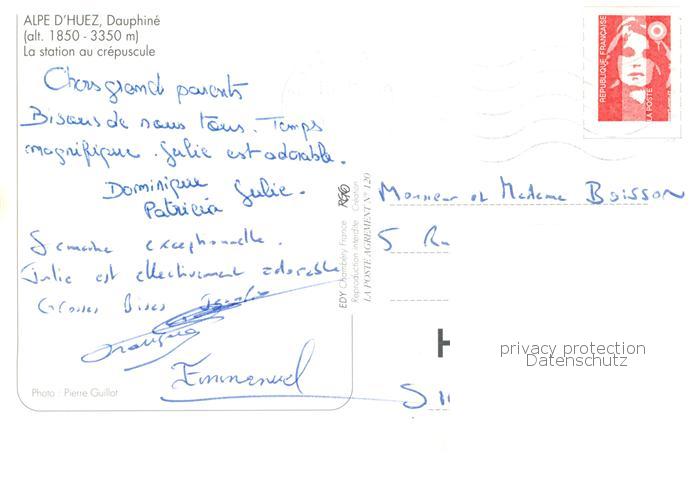 ALPE D'HUEZ, Dauphiné
(alt. 1850 - 3350 m)
La station au crépuscule
Chers grands parents
Bisous de nous tous. Temps
magnifique. Julie est adorable.
Dominique Julie.
Patricia
Semaine exceptionnelle.
Julie est effectivement adorable
Grosses Bises
Emmanuel
Photo : Pierre Guillot
EDY Chambéry France
Reproduction interdite Création
LA POSTE AGREMENT N° 120
REPUBLIQUE FRANÇAISE
LA POSTE
Monsieur et Madame BOISSON
5 Ru
H
S
privacy protection
Datenschutz